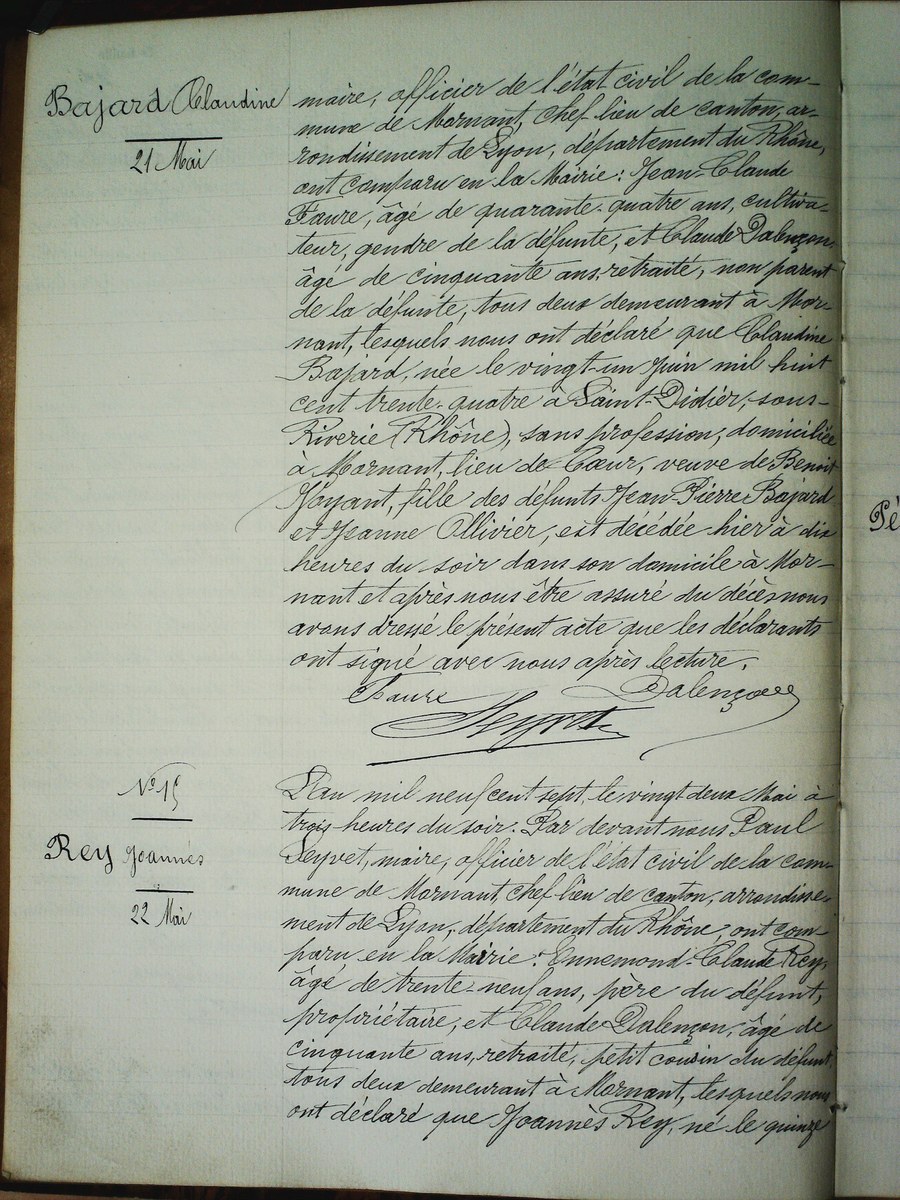 Bajard Claudine
21 Mai
maire, officier de l'état civil de la com-
mune de Mornant, chef lieu de canton, ar-
rondissement de Lyon, département du Rhône,
ont comparu en la Mairie: Jean-Claude
Faure, âgé de quarante-quatre ans, cultiva-
teur, gendre de la défunte, et Claude Dalençon,
âgé de cinquante ans, retraité, non parent
de la défunte, tous deux demeurant à Mor-
nant, lesquels nous ont déclaré que Claudine
Bajard, née le vingt-un Juin mil huit
cent trente-quatre à Saint-Didier-sous-
Riverie (Rhône), sans profession, domiciliée
à Mornant, lieu de Cœur, veuve de Benoit
Voyant, fille des défunts Jean-Pierre Bajard
et Jeanne Ollivier, est décédée hier à dix
heures du soir dans son domicile à Mor-
nant et après nous être assuré du décès nous
avons dressé le présent acte que les déclarants
ont signé avec nous après lecture.
Faure Dalençon
Seyvet
N° 15
Rey Joannès
22 Mai
L'an mil neuf cent sept, le vingt deux Mai à
trois heures du soir. Par devant nous Paul
Seyvet, maire, officier de l'état civil de la com-
mune de Mornant, chef lieu de canton, arrondisse-
ment de Lyon, département du Rhône, ont com-
paru en la Mairie: Ennemond-Claude Rey,
âgé de trente-neuf ans, père du défunt,
propriétaire, et Claude Dalençon, âgé de
cinquante ans, retraité, petit cousin du défunt,
tous deux demeurant à Mornant, lesquels nous
ont déclaré que Joannès Rey, né le quinze
Pé